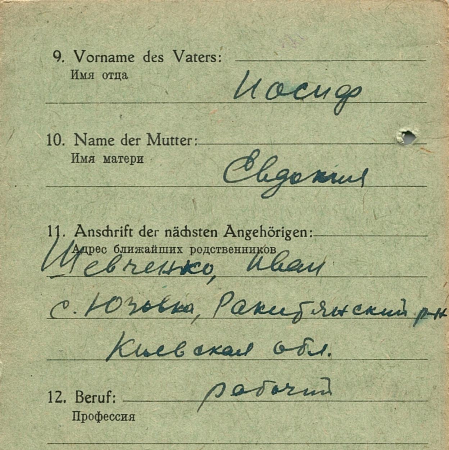 9. Vorname des Vaters:
Имя отца
Иосиф
10. Name der Mutter:
Имя матери
Евдокия
11. Anschrift der nächsten Angehörigen:
Адрес ближайших родственников
Шевченко, Иван
с. Юзовка, Ракитянский р-н
Киевская обл.
12. Beruf: рабочий
Профессия